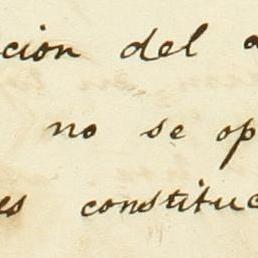 ción del a
no se op
es constituc